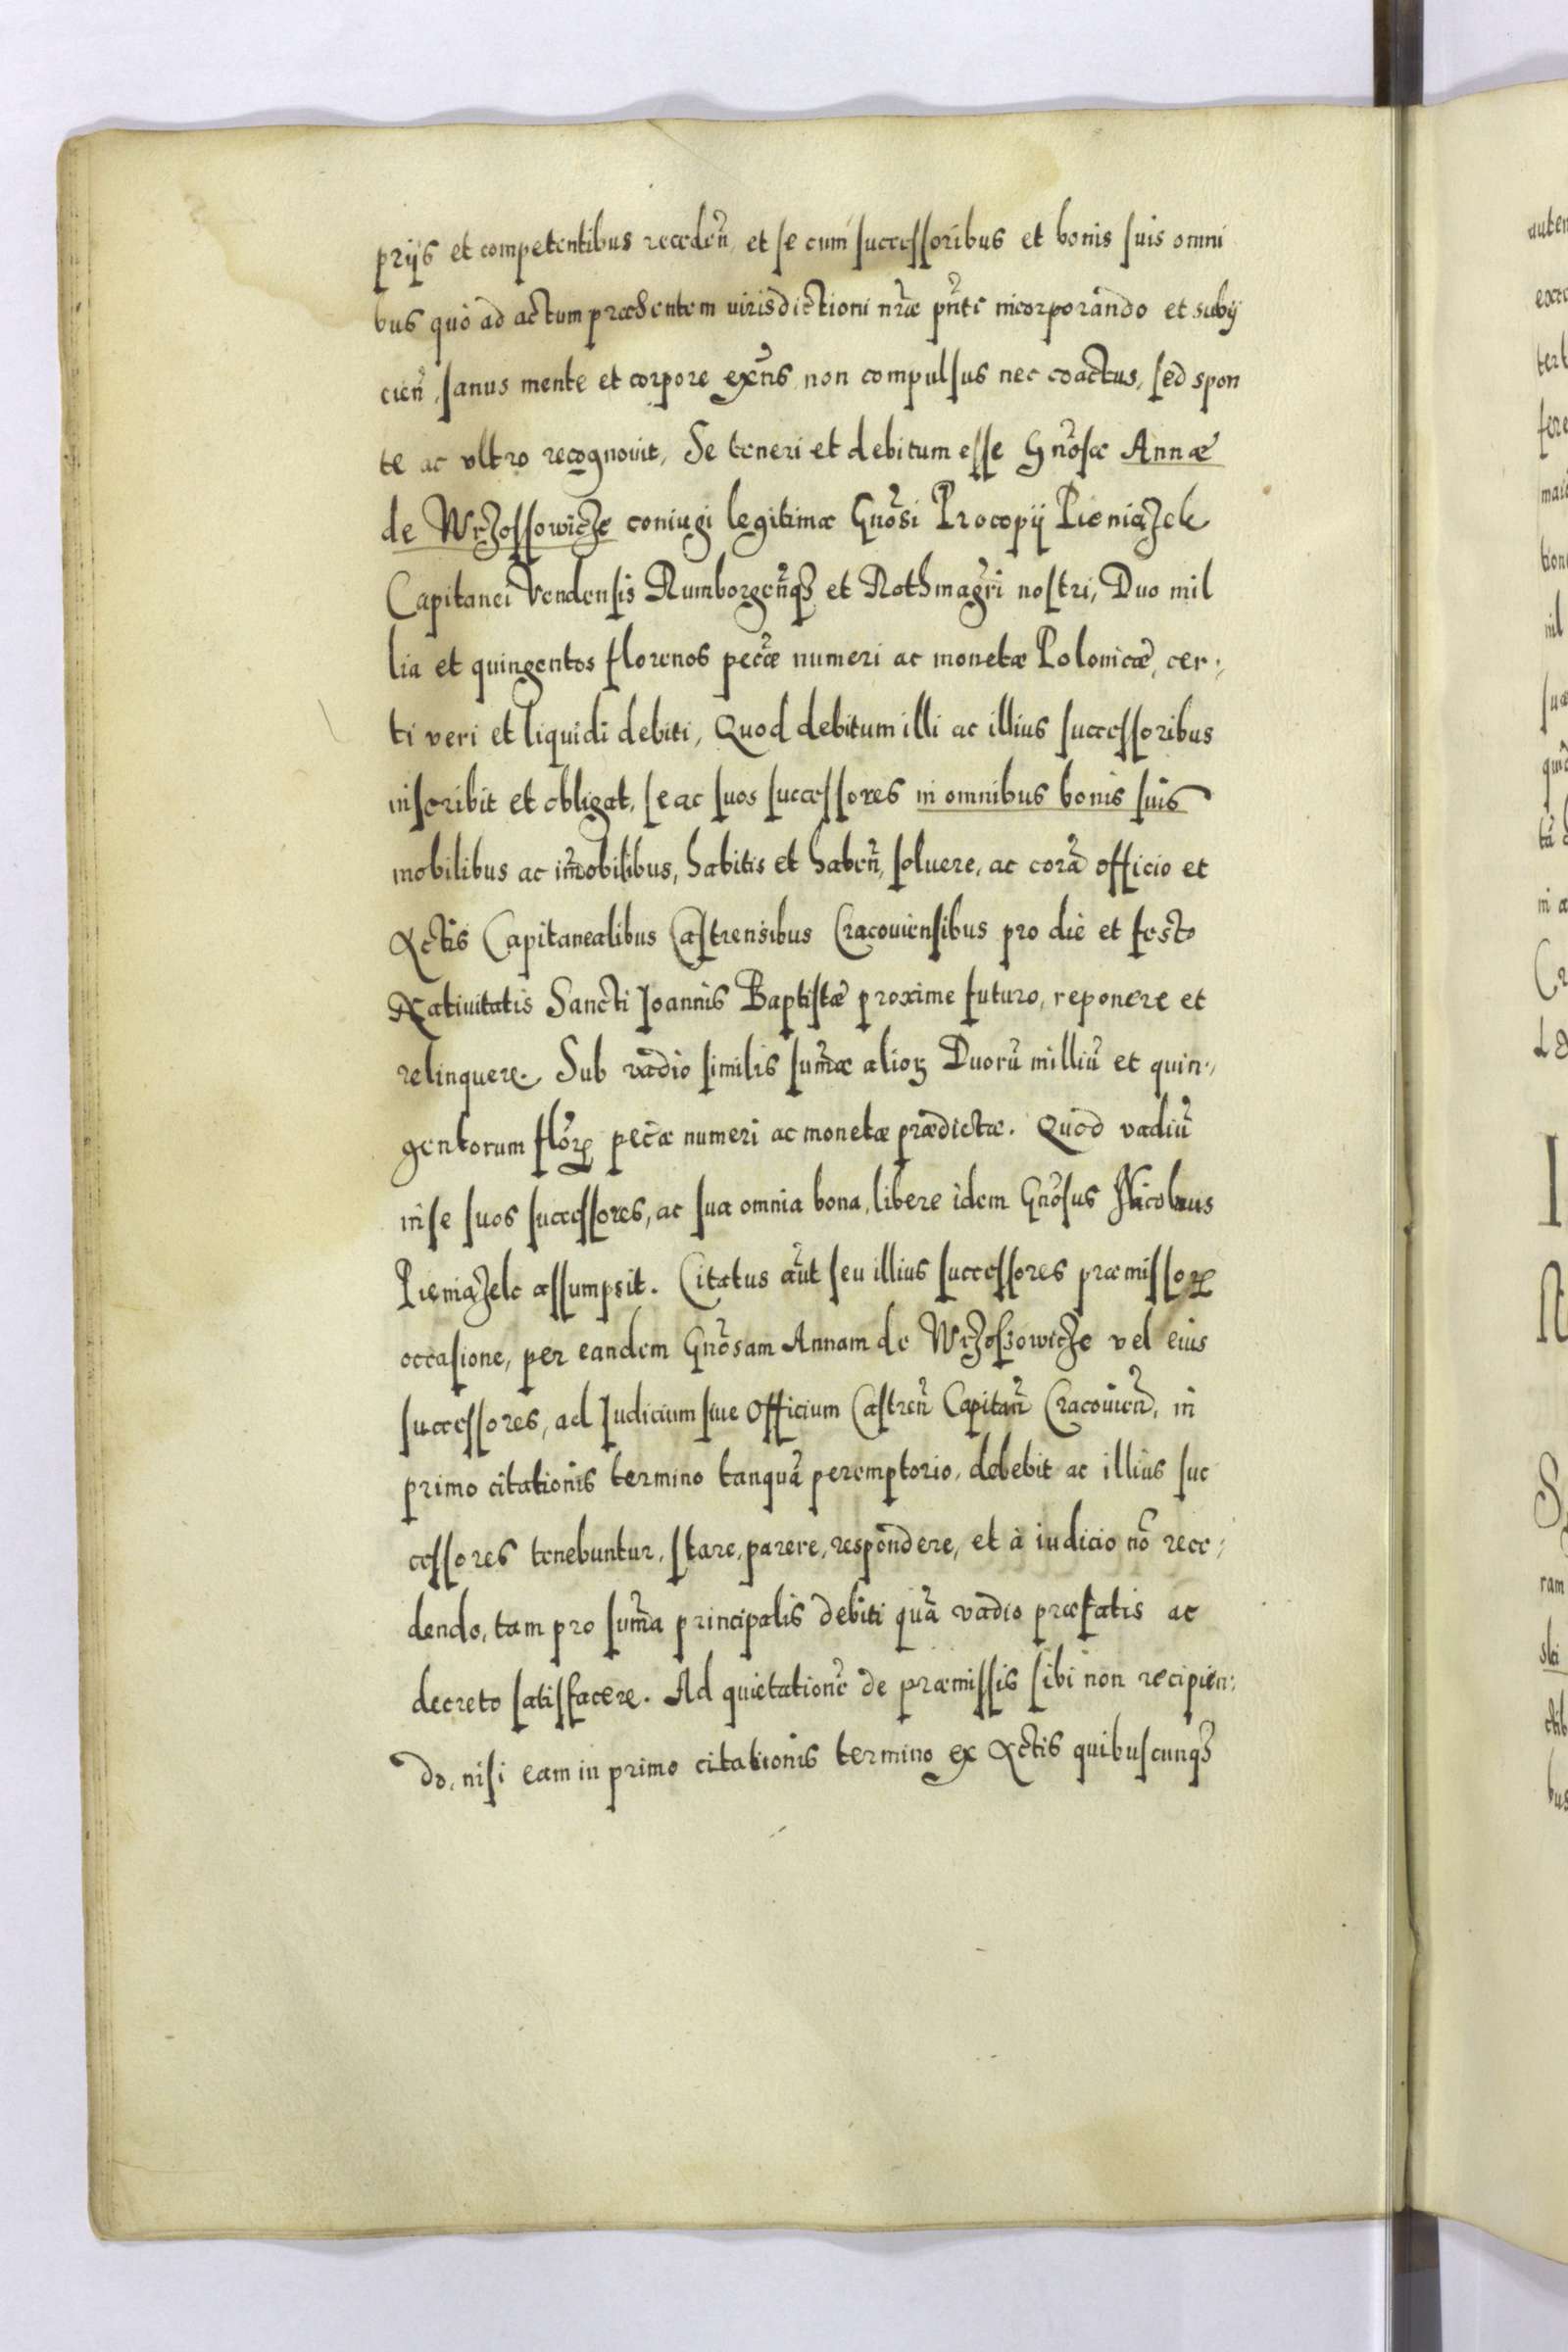 prijs et competentibus receden̄, et se cum successoribus et bonis suis omni
bus quò ad actum præsentem iurisdictioni nr̃æ pn̄te incorporando et subij
cien̄, sanus mente et corpore exn̄s, non compulsus nec coactus, sed spon
te ac ultro recognouit, Se teneri et debitum esse Gnõsæ Annæ
de Wrzossowicze coniugi legitimæ Gnõsi Procopij Pieniązek
Capitanei Vendensis Rumborgen̄qȝ et Rothmagr̃i nostri, Duo mil
lia et quingentos florenos pec̃æ numeri ac monetæ Polonicæ, cer,
ti veri et liquidi debiti, Quod debitum illi ac illius successoribus
inscribit et obligat, se ac suos successores in omnibus bonis suis
mobilibus ac im̃obilibus, habitis et haben̄, soluere, ac corã officio et
Actis Capitanealibus Castrensibus Cracouiensibus pro die et festo
Natiuitatis Sancti Joannis Baptistæ proxime futuro, reponere et
relinquere. Sub vadio similis sum̃æ alioꝝ Duorũ milliũ et quin,
gentorum flõrꝝ pec̃æ numeri ac monetæ prædictæ. Quod vadiũ
in se suos successores, ac sua omnia bona, libere idem Gnõsus Nicolaus
Pieniązek assumpsit. Citatus aũt seu illius successores præmissoꝝ
occasione, per eandem Gnõsam Annam de Wrzoszowicze vel eius
successores, ad Judicium siue Officium Castren̄ Capitan̄ Cracouien̄, in
primo citationis termino tanquã peremptorio, debebit ac illius suc
cessores tenebuntur, stare, parere, respondere, et à iudicio nõ rece,
dendo, tam pro sum̃a principalis debiti quã vadio præfatis ac
decreto satisfacere. Ad quietationẽ de præmissis sibi non recipien,
do, nisi eam in primo citationis termino ex Actis quibuscunqȝ